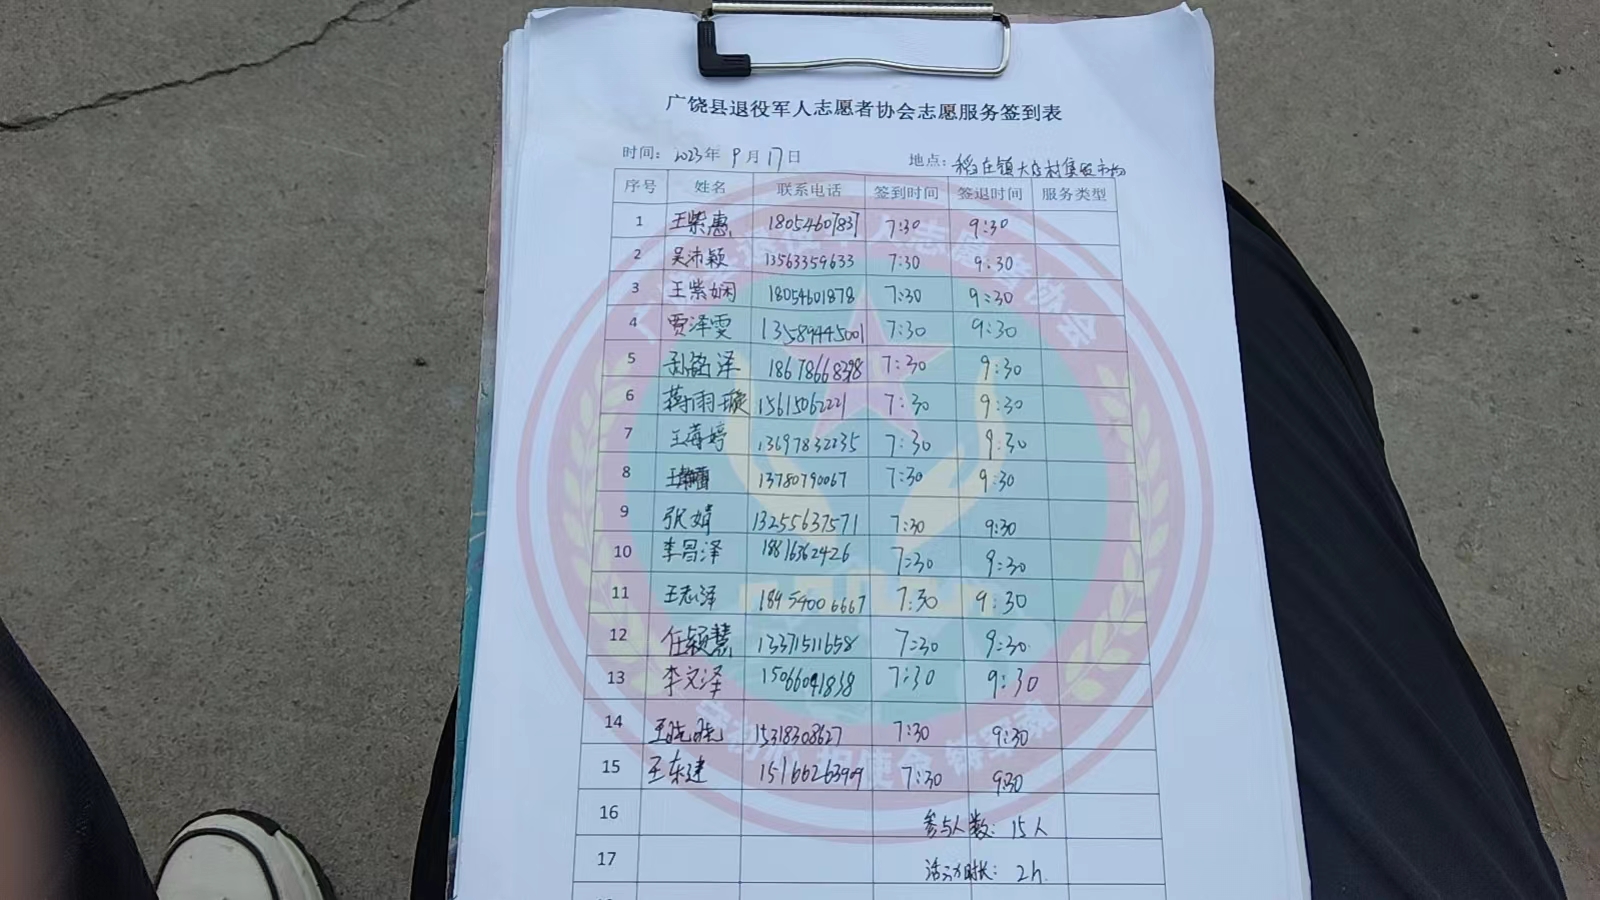 广饶县退役军人志愿者协会志愿服务签到表
时间: 2023年 9月17日 地点: 稻庄镇大店村集贸市场
序号 姓名 联系电话 签到时间 签退时间 服务类型
1 王紫惠 18054607837 7:30 9:30
2 吴沛颖 13563359633 7:30 9:30
3 王紫娴 18054601878 7:30 9:30
4 贾泽雯 13589445001 7:30 9:30
5 孙铭泽 18678668398 7:30 9:30
6 蒋雨璇 15615062221 7:30 9:30
7 王海婷 13697832235 7:30 9:30
8 13780790067 7:30 9:30
9 张婧 13255637571 7:30 9:30
10 李昌泽 18816362426 7:30 9:30
11 王志泽 18454006667 7:30 9:30
12 任颖慧 13371511658 7:30 9:30
13 李文泽 15066041838 7:30 9:30
14 15318308627 7:30 9:30
15 王东建 15166263909 7:30 9:30
16 参与人数: 15人
17 活动时长: 2h